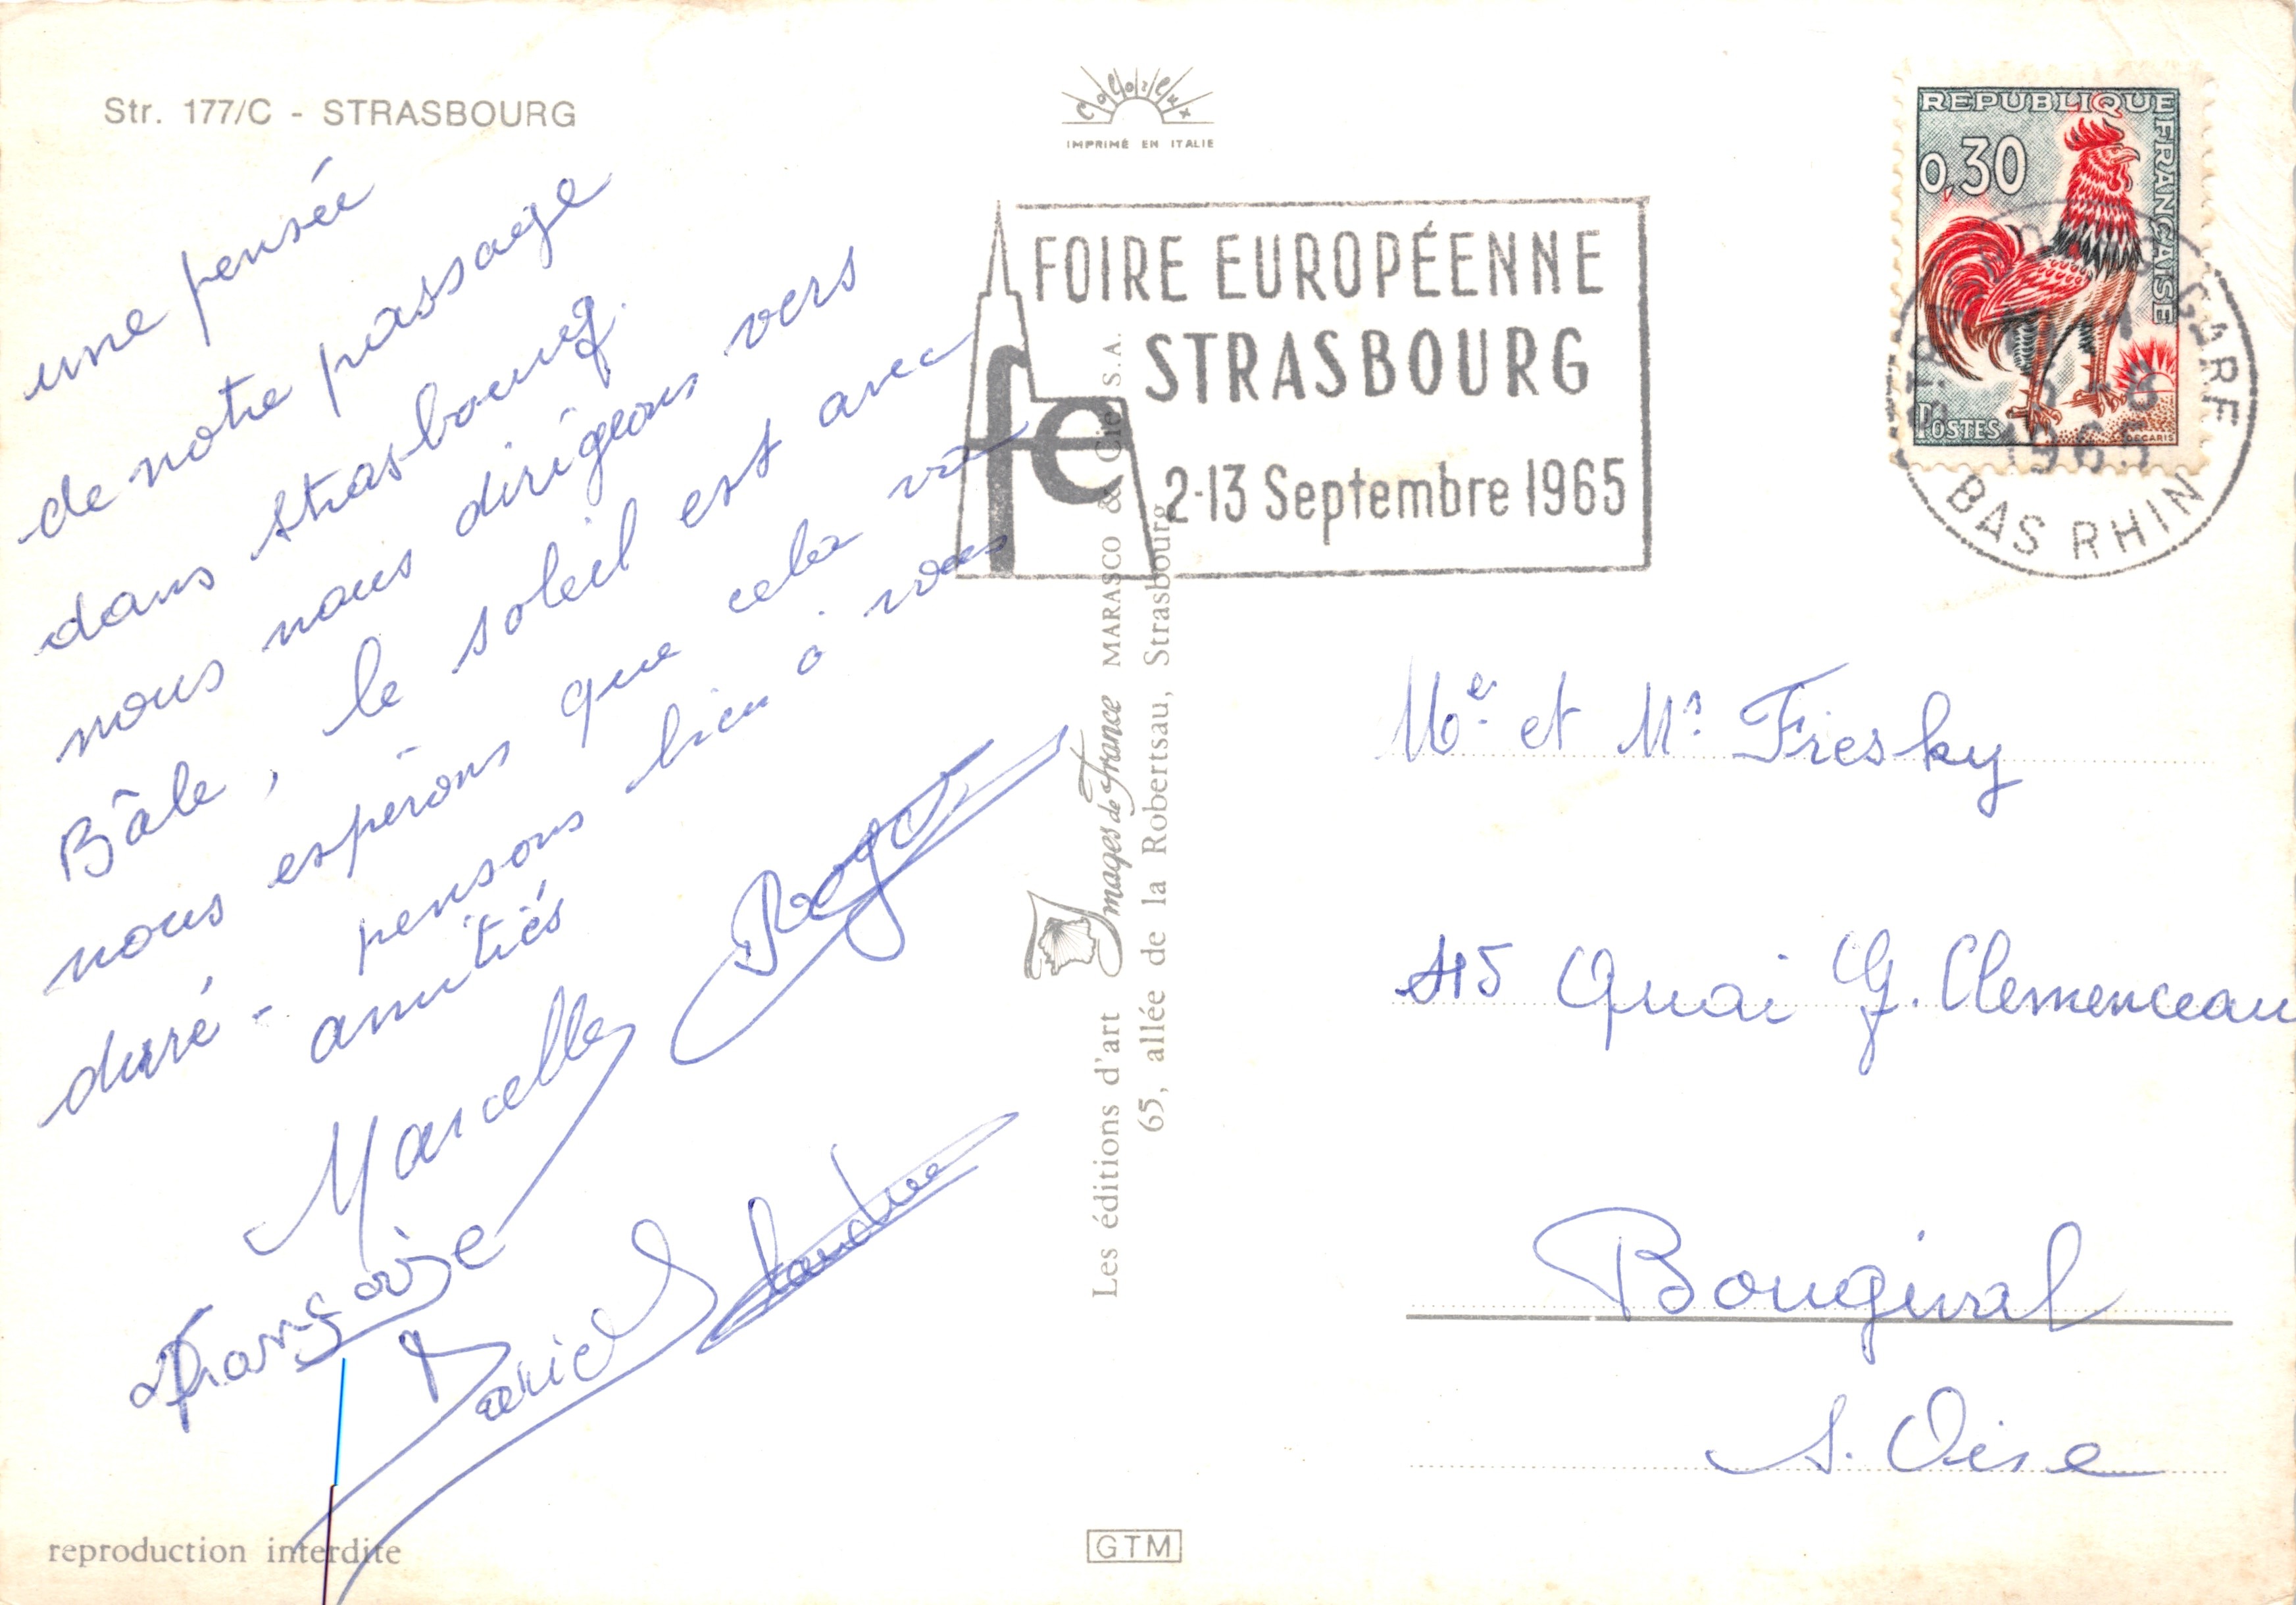 Str. 177/C - STRASBOURG
Colorlux
IMPRIMÉ EN ITALIE
REPUBLIQUE FRANÇAISE
0,30
POSTES
DECARIS
FOIRE EUROPÉENNE
STRASBOURG
fe
2-13 Septembre 1965
STRASBOURG GARE
1965
BAS RHIN
une pensée
de notre passage
dans strasbourg.
nous nous dirigeons vers
Bâle, le soleil est avec
nous espérons que cela va
duré - pensons bien à vous
amitiés
Marcelle Roger
Françoise
Daniel
Les éditions d'art Images de France MARASCO & Cie S.A.
65, allée de la Robertsau, Strasbourg
Me. et Mr Fresky
115 Quai G. Clemenceau
Bougival
S. Oise
reproduction interdite
GTM